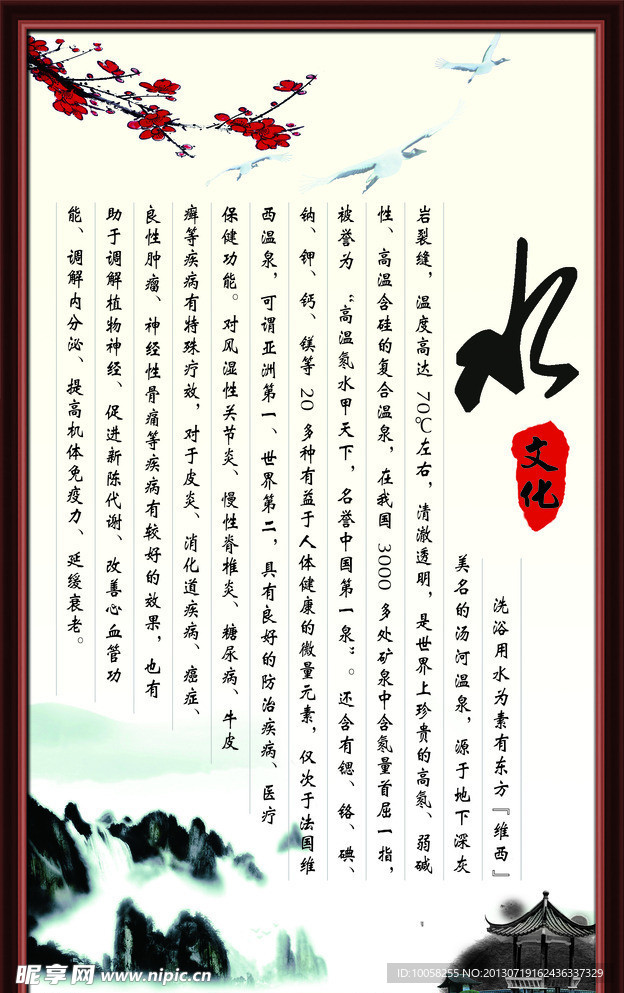 水
文化
洗浴用水为素有东方『维西』
美名的汤河温泉，源于地下深灰
岩裂缝，温度高达 70℃左右，清澈透明，是世界上珍贵的高氡、弱碱
性、高温含硅的复合温泉，在我国 3000 多处矿泉中含氡量首屈一指，
被誉为 “高温氡水甲天下，名誉中国第一泉”。还含有锶、铬、碘、
钠、钾、钙、镁等 20 多种有益于人体健康的微量元素，仅次于法国维
西温泉，可谓亚洲第一、世界第二，具有良好的防治疾病、医疗
保健功能。对风湿性关节炎、慢性脊椎炎、糖尿病、牛皮
癣等疾病有特殊疗效，对于皮炎、消化道疾病、癌症、
良性肿瘤、神经性骨痛等疾病有较好的效果，也有
助于调解植物神经、促进新陈代谢、改善心血管功
能、调解内分泌、提高机体免疫力、延缓衰老。
昵享网 www.nipic.cn
ID:10058255 NO:20130719162436337329